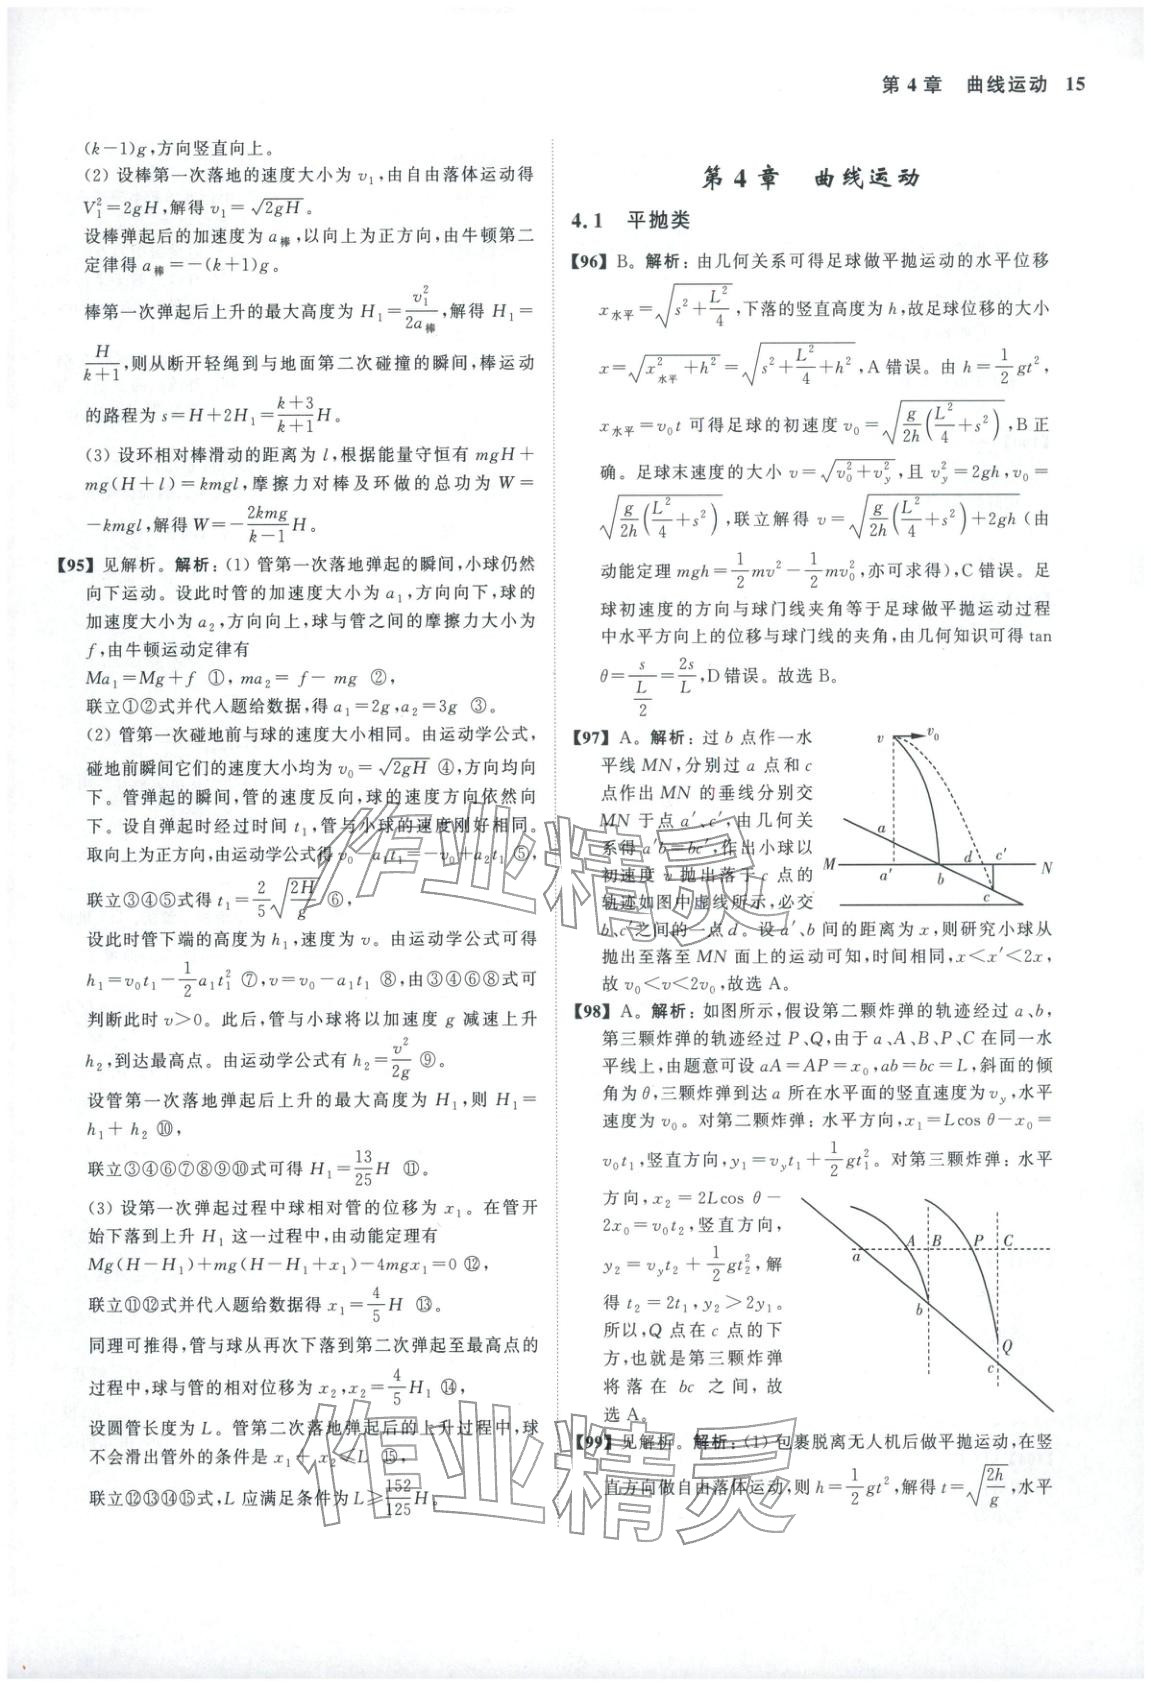 第 4 章　曲线运动　15
(k-1)g,方向竖直向上。
(2) 设棒第一次落地的速度大小为 v₁,由自由落体运动得
V₁²=2gH,解得 v₁=√(2gH)。
设棒弹起后的加速度为 a棒,以向上为正方向,由牛顿第二
定律得 a棒=-(k+1)g。
棒第一次弹起后上升的最大高度为 H₁=v₁²/2a棒,解得 H₁=
H/(k+1),则从断开轻绳到与地面第二次碰撞的瞬间,棒运动
的路程为 s=H+2H₁=(k+3)/(k+1)H。
(3) 设环相对棒滑动的距离为 l,根据能量守恒有 mgH+
mg(H+l)=kmgl,摩擦力对棒及环做的总功为 W=
-kmgl,解得 W=-2kmg/(k-1)H。
【95】见解析。解析:(1) 管第一次落地弹起的瞬间,小球仍然
向下运动。设此时管的加速度大小为 a₁,方向向下,球的
加速度大小为 a₂,方向向上,球与管之间的摩擦力大小为
f,由牛顿运动定律有
Ma₁=Mg+f ①, ma₂= f- mg ②,
联立①②式并代入题给数据,得 a₁=2g,a₂=3g ③。
(2) 管第一次碰地前与球的速度大小相同。由运动学公式,
碰地前瞬间它们的速度大小均为 v₀=√(2gH) ④,方向均向
下。管弹起的瞬间,管的速度反向,球的速度方向依然向
下。设自弹起时经过时间 t₁,管与小球的速度刚好相同。
取向上为正方向,由运动学公式得 v₀-a₁t₁=-v₀+a₂t₁ ⑤,
联立③④⑤式得 t₁=2/5√(2H/g) ⑥,
设此时管下端的高度为 h₁,速度为 v。由运动学公式可得
h₁=v₀t₁-1/2a₁t₁² ⑦,v=v₀-a₁t₁ ⑧,由③④⑥⑧式可
判断此时 v>0。此后,管与小球将以加速度 g 减速上升
h₂,到达最高点。由运动学公式有 h₂=v²/2g ⑨。
设管第一次落地弹起后上升的最大高度为 H₁,则 H₁=
h₁+h₂ ⑩,
联立③④⑥⑦⑧⑨⑩式可得 H₁=13/25H ⑪。
(3) 设第一次弹起过程中球相对管的位移为 x₁。在管开
始下落到上升 H₁ 这一过程中,由动能定理有
Mg(H-H₁)+mg(H-H₁+x₁)-4mgx₁=0 ⑫,
联立⑪⑫式并代入题给数据得 x₁=4/5H ⑬。
同理可推得,管与球从再次下落到第二次弹起至最高点的
过程中,球与管的相对位移为 x₂,x₂=4/5H₁ ⑭,
设圆管长度为 L。管第二次落地弹起后的上升过程中,球
不会滑出管外的条件是 x₁+x₂≤L ⑮,
联立⑫⑬⑭⑮式,L 应满足条件为 L≥152/125H。
第 4 章　曲线运动
4.1　平抛类
【96】B。解析:由几何关系可得足球做平抛运动的水平位移
x水平=√(s²+L²/4),下落的竖直高度为 h,故足球位移的大小
x=√(x²水平+h²)=√(s²+L²/4+h²),A 错误。由 h=1/2gt²,
x水平=v₀t 可得足球的初速度 v₀=√(g/2h(L²/4+s²)),B 正
确。足球末速度的大小 v=√(v₀²+v_y²),且 v_y²=2gh,v₀=
√(g/2h(L²/4+s²)),联立解得 v=√(g/2h(L²/4+s²)+2gh)(由
动能定理 mgh=1/2mv²-1/2mv₀²,亦可求得),C 错误。足
球初速度的方向与球门线夹角等于足球做平抛运动过程
中水平方向上的位移与球门线的夹角,由几何知识可得 tan
θ=s/(L/2)=2s/L,D 错误。故选 B。
【97】A。解析:过 b 点作一水
平线 MN,分别过 a 点和 c
点作出 MN 的垂线分别交
MN 于点 a′、c′,由几何关
系得 a′b=bc′,作出小球以
初速度 v 抛出落于 c 点的
轨迹如图中虚线所示,必交
b、c′之间的一点 d。设 a′、b 间的距离为 x,则研究小球从
抛出至落至 MN 面上的运动可知,时间相同,x<x′<2x,
故 v₀<v<2v₀,故选 A。
v v₀
a
M a′ b d c′ N
c
【98】A。解析:如图所示,假设第二颗炸弹的轨迹经过 a、b,
第三颗炸弹的轨迹经过 P、Q,由于 a、A、B、P、C 在同一水
平线上,由题意可设 aA=AP=x₀,ab=bc=L,斜面的倾
角为 θ,三颗炸弹到达 a 所在水平面的竖直速度为 v_y,水平
速度为 v₀。对第二颗炸弹:水平方向,x₁=Lcos θ-x₀=
v₀t₁,竖直方向,y₁=v_yt₁+1/2gt₁²。对第三颗炸弹:水平
方向,x₂=2Lcos θ-
2x₀=v₀t₂,竖直方向,
y₂=v_yt₂+1/2gt₂²,解
得 t₂=2t₁,y₂>2y₁。
所以,Q 点在 c 点的下
方,也就是第三颗炸弹
将落在 bc 之间,故
选 A。
a A B P C
b
Q
c
【99】见解析。解析:(1) 包裹脱离无人机后做平抛运动,在竖
直方向做自由落体运动,则 h=1/2gt²,解得 t=√(2h/g),水平
作业精灵
作业精灵